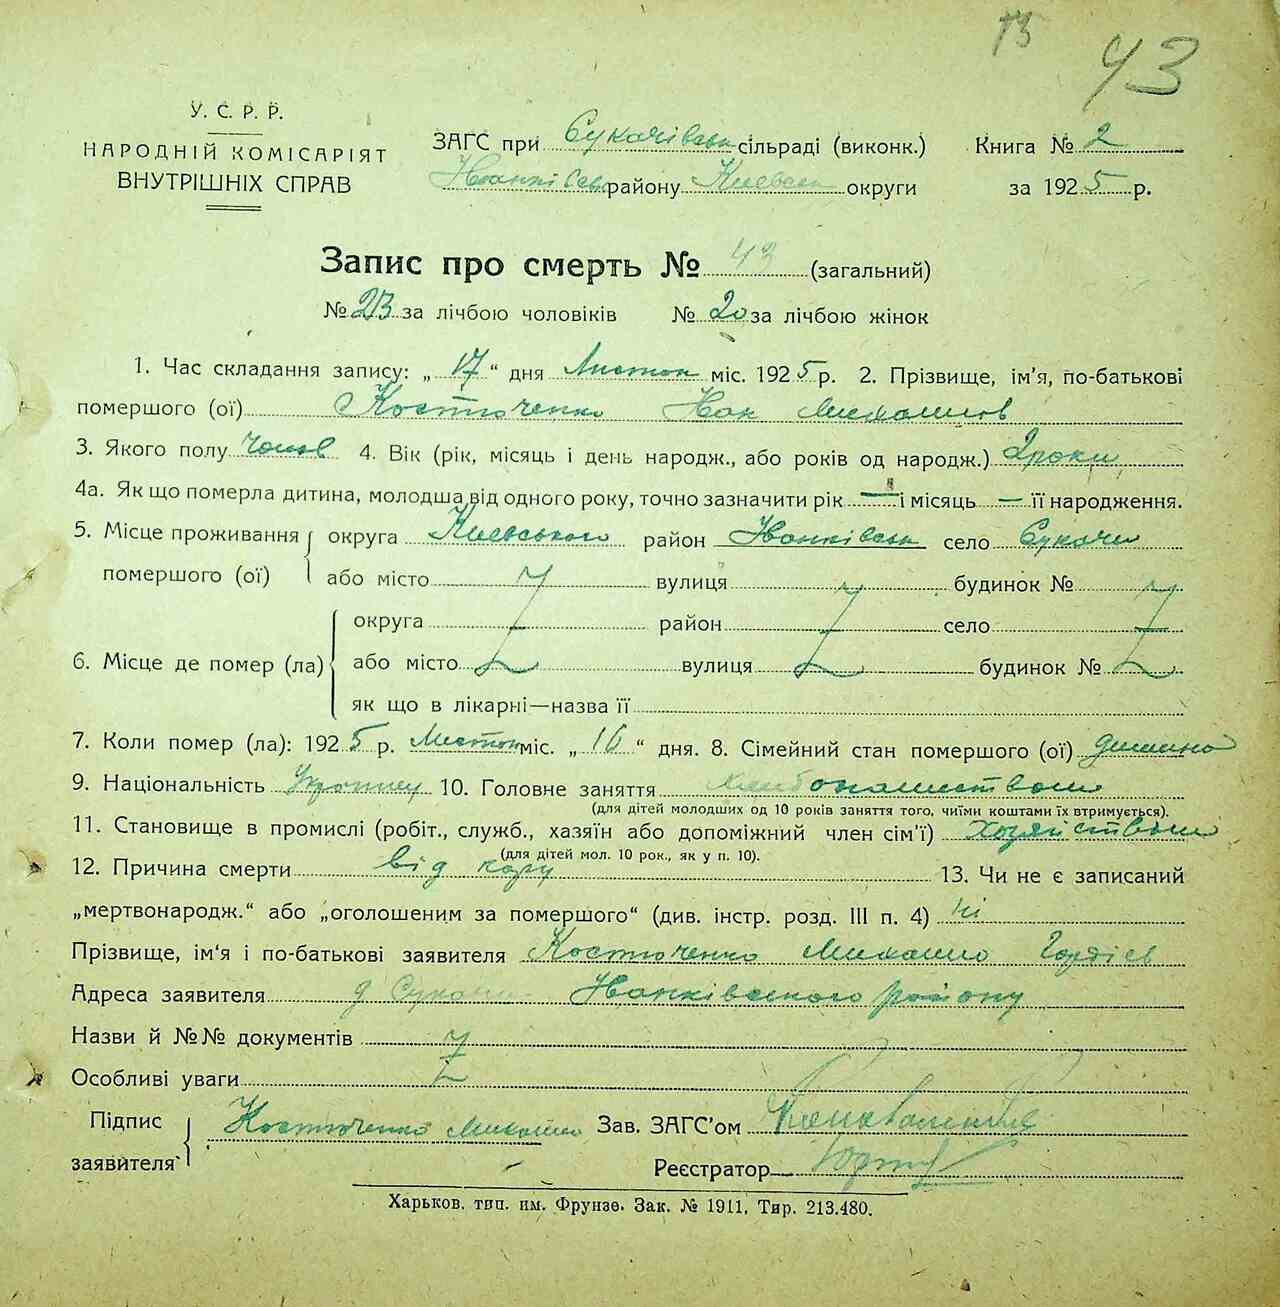 13 43
У. С. Р. Р.
НАРОДНІЙ КОМІСАРІЯТ
ВНУТРІШНІХ СПРАВ
ЗАГС при Сукачівськ сільраді (виконк.) Книга № 2
району Київськ округи за 1925 р.
Запис про смерть № 43 (загальний)
№ 23 за лічбою чоловіків № 20 за лічбою жінок
1. Час складання запису: „ 17 “ дня Листоп міс. 1925 р. 2. Прізвище, ім'я, по-батькові
помершого (ої) Костюченко Михайлов
3. Якого полу 4. Вік (рік, місяць і день народж., або років од народж.) 2 роки
4а. Як що померла дитина, молодша від одного року, точно зазначити рік — і місяць — її народження.
5. Місце проживання округа Киевського район село Сукачи
помершого (ої) або місто вулиця будинок №
округа район село
6. Місце де помер (ла) або місто вулиця будинок №
як що в лікарні—назва її
7. Коли помер (ла): 1925 р. Листоп міс. „ 16 “ дня. 8. Сімейний стан помершого (ої) дитина
9. Національність 10. Головне заняття хлибопашством
(для дітей молодших од 10 років заняття того, чиїми коштами їх втримується).
11. Становище в промислі (робіт., служб., хазяїн або допоміжний член сім'ї)
(для дітей мол. 10 рок., як у п. 10).
12. Причина смерти від кору 13. Чи не є записаний
„мертвонародж.“ або „оголошеним за помершого“ (див. інстр. розд. III п. 4) ні
Прізвище, ім'я і по-батькові заявителя Костюченко Михайло Гордіев
Адреса заявителя Сукачи району
Назви й №№ документів
Особливі уваги
Підпис заявителя Костюченко Михайло Зав. ЗАГС'ом
Реєстратор
Харьков. тип. им. Фрунзе. Зак. № 1911, Тир. 213.480.